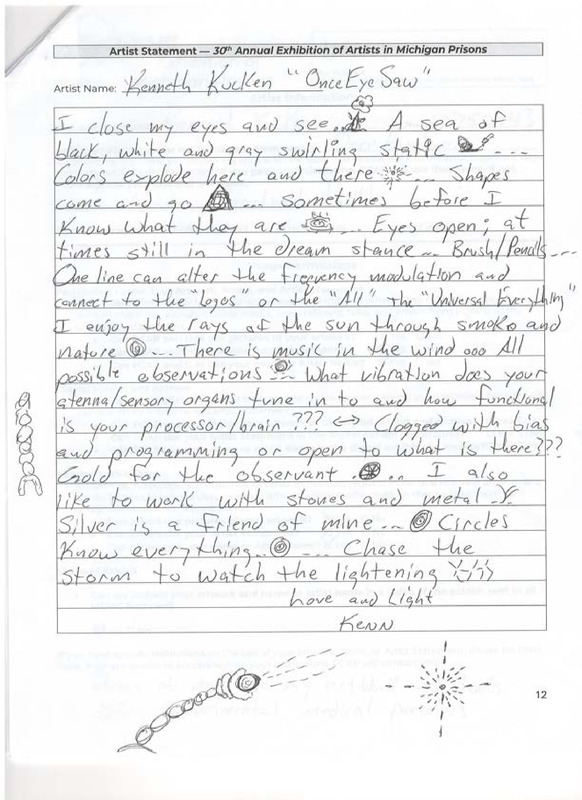 Artist Statement — 30th Annual Exhibition of Artists in Michigan Prisons
Artist Name: Kenneth Kucken "OnceEyeSaw"
I close my eyes and see... A sea of
black, white and gray swirling static ....
Colors explode here and there .... Shapes
come and go ... Sometimes before I
Know what they are ... Eyes open; at
times still in the dream stance... Brush/Pencils...
One line can alter the frequency modulation and
connect to the "logos" or the "All" The "Universal Everything"
I enjoy the rays of the sun through smoke and
nature .... There is music in the wind ooo All
possible observations ... What vibration does your
atenna/sensory organs tune in to and how functional
is your processor/brain ??? ↔ Clogged with bias
and programming or open to what is there???
Gold for the observant ... I also
like to work with stones and metal
Silver is a friend of mine... Circles
Know everything... .... Chase the
Storm to watch the lightening
Love and Light
Kenn
12